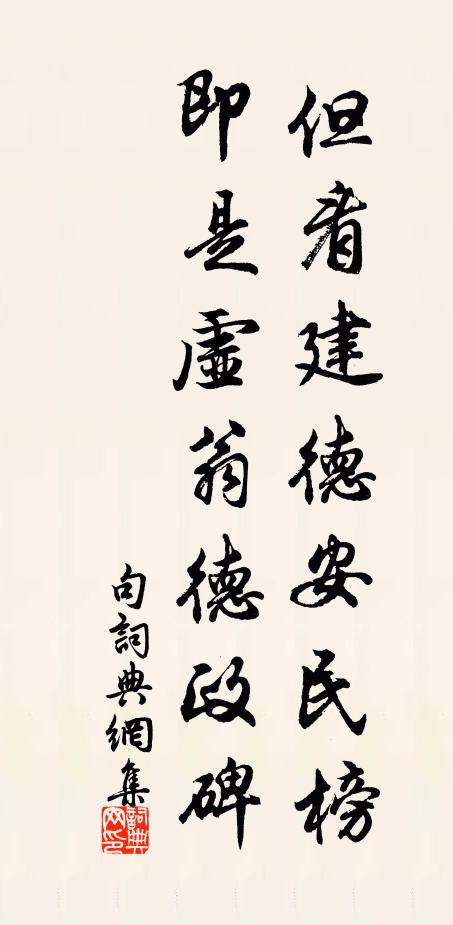 但看建德安民榜
即是虛翁德政碑
句詞典網集
詞典
网印